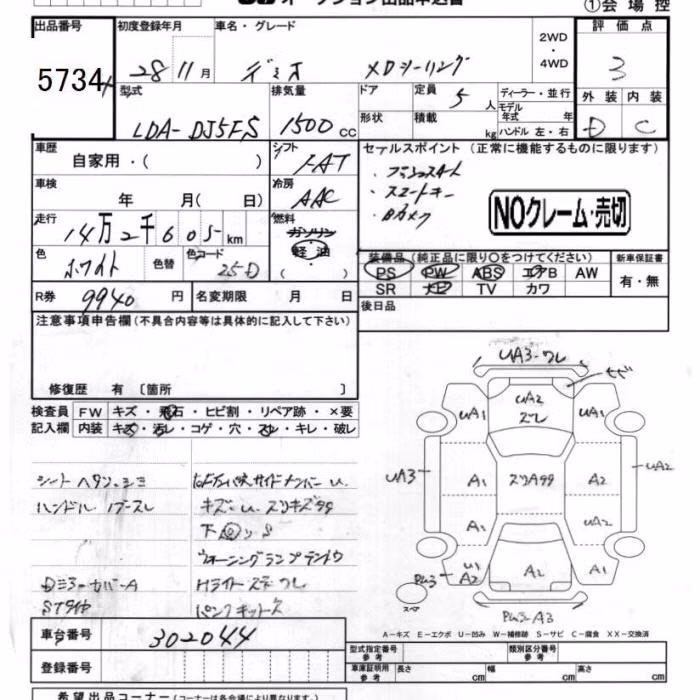 オークション出品申込書
①会場控
出品番号 初度登録年月 車名・グレード 2WD・4WD 評価点
5734 28 11月 デミオ XDツーリング 3
型式 排気量 ドア 定員 ディーラー・並行 外装 内装
LDA-DJ5FS 1500cc 5人 モデル年式 年 D C
形状 積載 kg ハンドル 左・右
車歴 自家用・( ) シフト FAT セールスポイント (正常に機能するものに限ります)
・プッシュスタート
車検 年 月( 日) 冷房 AAC ・スマートキー
・Bカメラ
NOクレーム・売切
走行 14万2千605km 燃料 ガソリン・軽油 ( )
色 ホワイト 色替 色コード 25D
装備品 (純正品に限り○をつけてください) 新車保証書
PS PW ABS エアB AW 有・無
SR ナビ TV カワ
R券 9940円 名変期限 月 日 後日品
注意事項申告欄 (不具合内容等は具体的に記入して下さい)
修復歴 有 〔箇所 〕
検査員記入欄 FW キズ・飛石・ヒビ割・リペア跡・×要
内装 キズ・汚レ・コゲ・穴・スレ・キレ・破レ
シート ヘタリ・シミ
ハンドル
キズ・U スリキズ
下 S
ウォーニングランプテントウ
Dミラーカバー A
Hライト
STタイヤ
パンクキット
UA3-ワレ
UA1 UA2 UA1
UA3 A1 スリA99 A2 UA2
A1 UA2
A2 A2 A1
スペア
A3
A-キズ E-エクボ U-凹み W-補修跡 S-サビ C-腐食 XX-交換済
車台番号 302044
型式指定番号 参考 類別区分番号 参考
登録番号 車庫証明用 参考 長さ cm 幅 cm 高さ cm
希望出品コーナー (コーナーは各会場により異なります)